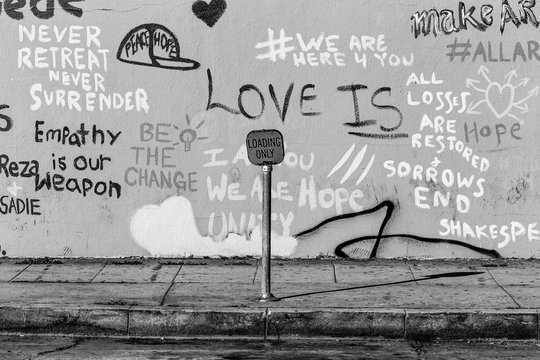 NEVER
RETREAT
NEVER
SURRENDER
PEACE HOPE
#WE ARE
HERE 4 YOU
make
#ALLAR
LOVE IS
Empathy
is our
Weapon
Reza
+
SADIE
BE
THE
CHANGE
LOADING
ONLY
I A YOU
We ARe HoPe
UNITY
ALL
LOSSES
ARE
RESTORED
+
SORROWS
END
SHAKESPE
Hope